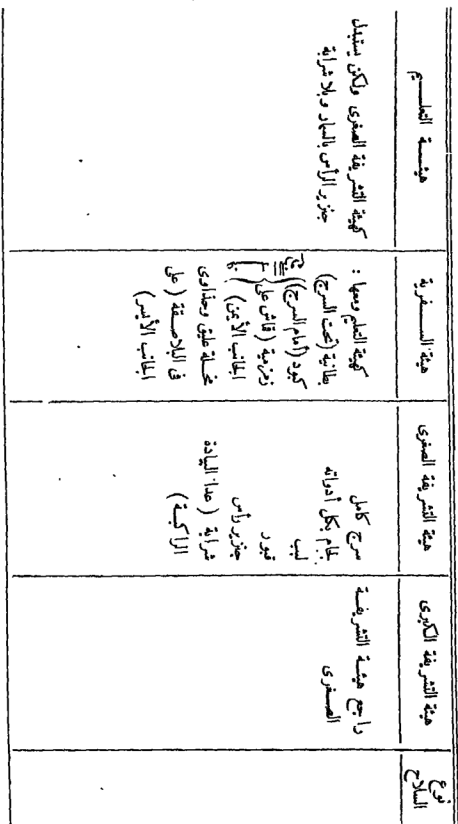 نوع السلاح
هيئة التشريفة الكبرى
هيئة التشريفة الصغرى
هيئة السفرية
هيئة التعليم
راجع هيئة التشريفة
الصغرى
سرج كامل
لجام بكل أدواته
لبب
قبور
جنزير رأس
شرابة (عدا البيادة
الراكبة)
كهيئة التعليم ومعها :
بطانية (تحت السرج)
كبود (أمام السرج)
وزمزمية (قاش على
الجانب الأيمن)
مخلة عليق وحذاوى
فى البلاصقة (على
الجانب الأيسر)
كهيئة التشريفة الصغرى ولكن يستبدل
جنزير الرأس بالسمار وبلا شرابة